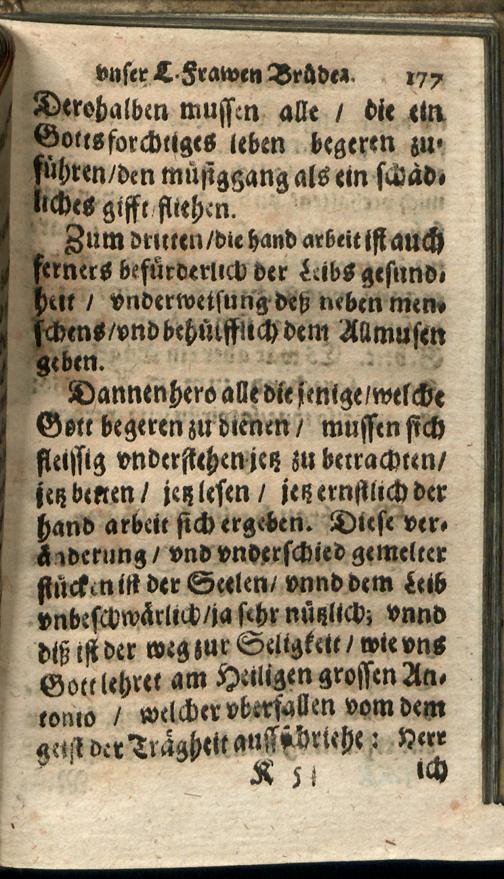 vnser L. Frawen Brüder. 177
Derohalben mussen alle / die ein
Gottsforchtiges leben begeren zu-
führen/den müsiggang als ein schäd-
liches gifft fliehen.
Zum dritten/die hand arbeit ist auch
ferners befürderlich der Leibs gesund-
heit / vnderweisung deß neben men-
schens/vnd behülfflich dem Allmusen
geben.
Dannenhero alle die jenige/welche
Gott begeren zu dienen / mussen sich
fleissig vnderstehen jetz zu betrachten/
jetz betten / jetz lesen / jetz ernstlich der
hand arbeit sich ergeben. Diese ver-
änderung / vnd vnderschied gemelter
stücken ist der Seelen/ vnnd dem Leib
vnbeschwärlich/ja sehr nützlich; vnnd
diß ist der weg zur Seligkeit / wie vns
Gott lehret am Heiligen grossen An-
tonio / welcher vberfallen vom dem
geist der Trägheit auffschriehe : Herr
K 5 ich